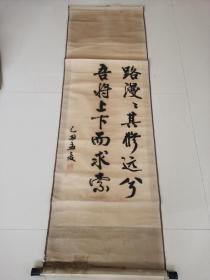 路漫〻其修远兮
吾将上下而求索
己丑孟夏